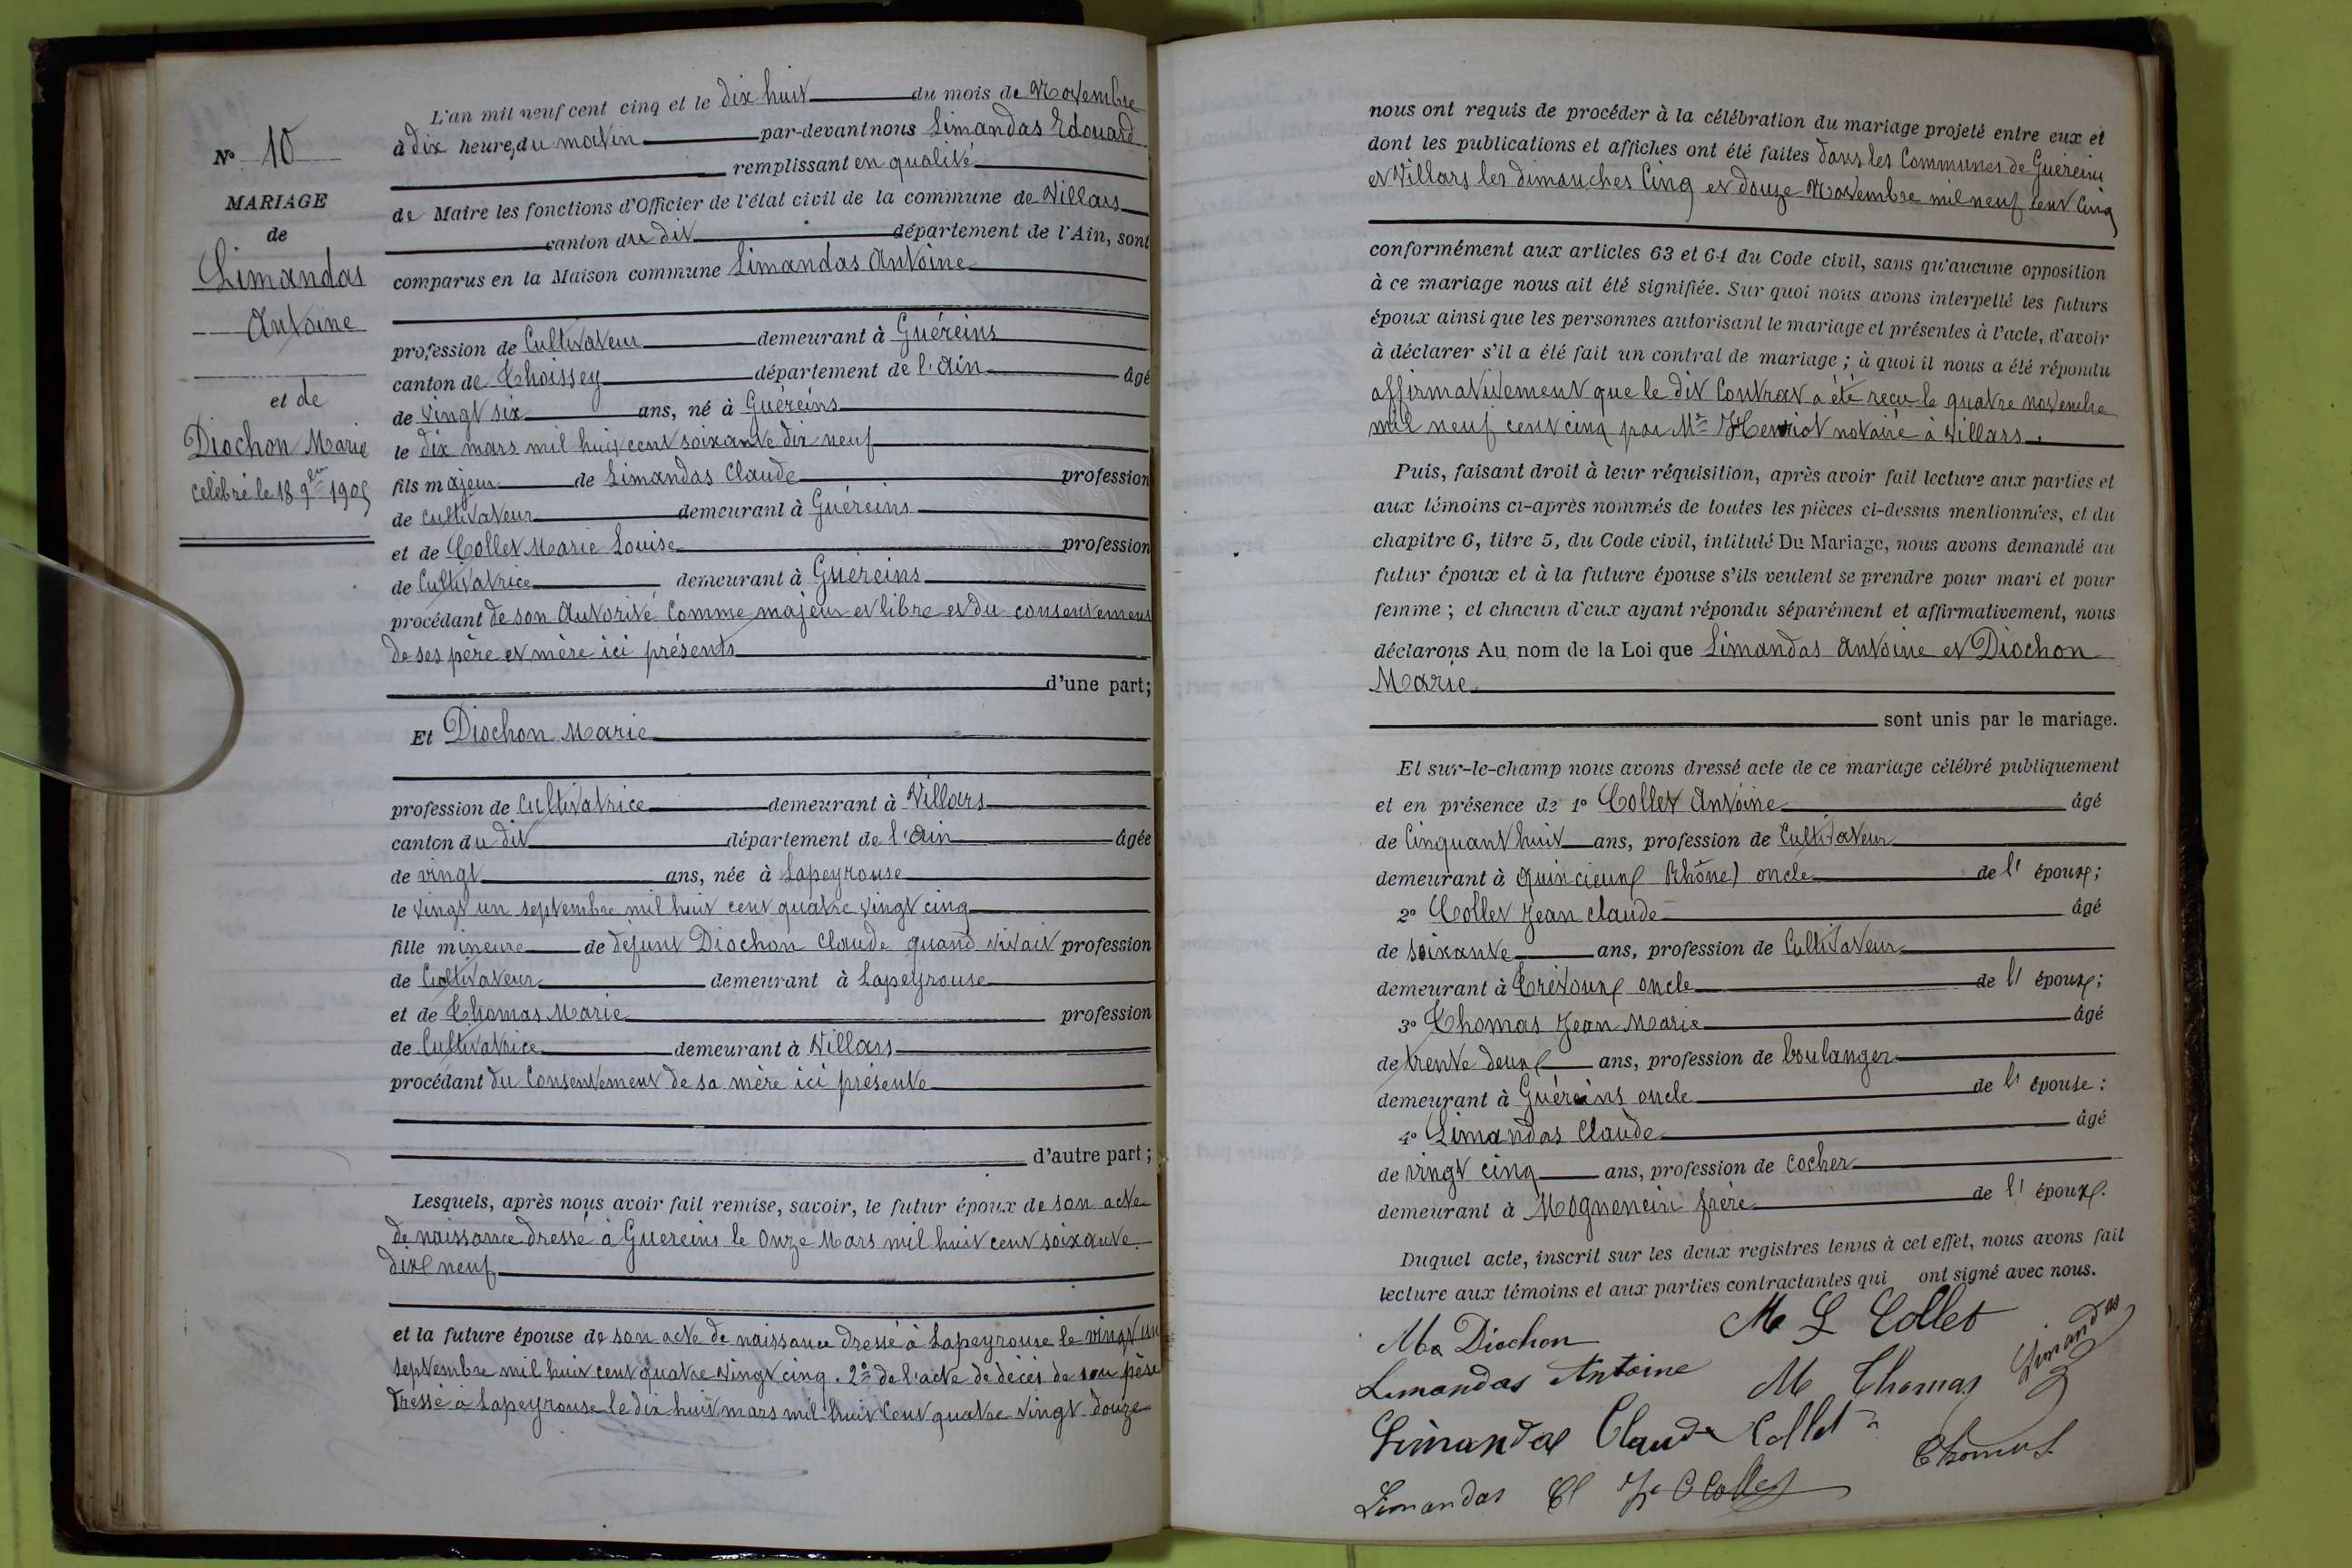 N° 10
MARIAGE
de
Limandas
Antoine
et de
Diochon Marie
célébré le 18 9bre 1905
L'an mil neuf cent cinq et le dix huit du mois de Novembre
à dix heures du matin par-devant nous Limandas Edouard
remplissant en qualité
de Maire les fonctions d'Officier de l'état civil de la commune de Villars
canton du dit département de l'Ain, sont
comparus en la Maison commune Limandas Antoine
profession de Cultivateur demeurant à Guéreins
canton de Thoissey département de l'Ain âgé
de vingt six ans, né à Guéreins
le dix mars mil huit cent soixante dix neuf
fils majeur de Limandas Claude profession
de cultivateur demeurant à Guéreins
et de Collet Marie Louise profession
de Cultivatrice demeurant à Guéreins
procédant de son Autorité Comme majeur et libre et du consentement
de ses père et mère ici présents
d'une part;
Et Diochon Marie
profession de Cultivatrice demeurant à Villars
canton du dit département de l'Ain âgée
de vingt ans, née à Lapeyrouse
le vingt un septembre mil huit cent quatre vingt cinq
fille mineure de défunt Diochon Claude quand vivait profession
de Cultivateur demeurant à Lapeyrouse
et de Thomas Marie profession
de Cultivatrice demeurant à Villars
procédant du Consentement de sa mère ici présente
d'autre part;
Lesquels, après nous avoir fait remise, savoir, le futur époux de son acte
de naissance dressé à Guereins le onze Mars mil huit cent soixante
dix neuf
et la future épouse de son acte de naissance dressé à Lapeyrouse le vingt un
septembre mil huit cent quatre vingt cinq. 2° de l'acte de décès de son père
dressé à Lapeyrouse le dix huit mars mil huit Cent quatre vingt douze
nous ont requis de procéder à la célébration du mariage projeté entre eux et
dont les publications et affiches ont été faites dans les Communes de Guéreins
et Villars les dimanches Cinq et douze Novembre mil neuf cent Cinq
conformément aux articles 63 et 64 du Code civil, sans qu'aucune opposition
à ce mariage nous ait été signifiée. Sur quoi nous avons interpellé les futurs
époux ainsi que les personnes autorisant le mariage et présentes à l'acte, d'avoir
à déclarer s'il a été fait un contrat de mariage; à quoi il nous a été répondu
affirmativement que le dit Contrat a été reçu le quatre novembre
mil neuf cent cinq par Me Henriot notaire à Villars.
Puis, faisant droit à leur réquisition, après avoir fait lecture aux parties et
aux témoins ci-après nommés de toutes les pièces ci-dessus mentionnées, et du
chapitre 6, titre 5, du Code civil, intitulé Du Mariage, nous avons demandé au
futur époux et à la future épouse s'ils veulent se prendre pour mari et pour
femme; et chacun d'eux ayant répondu séparément et affirmativement, nous
déclarons Au nom de la Loi que Limandas Antoine et Diochon
Marie
sont unis par le mariage.
Et sur-le-champ nous avons dressé acte de ce mariage célébré publiquement
et en présence de 1° Collet Antoine âgé
de Cinquant huit ans, profession de Cultivateur
demeurant à Quincieux Rhône) oncle de l' époux;
2° Collet Jean Claude âgé
de soixante ans, profession de Cultivateur
demeurant à Trévoux oncle de l' époux;
3° Thomas Jean Marie âgé
de trente deux ans, profession de boulanger
demeurant à Guéreins oncle de l' épouse:
4° Limandas Claude âgé
de vingt cinq ans, profession de cocher
demeurant à Mognenein frère de l' époux.
Duquel acte, inscrit sur les deux registres tenus à cet effet, nous avons fait
lecture aux témoins et aux parties contractantes qui ont signé avec nous.
Ma Diochon M L Collet
Limandas Antoine M Thomas Limandas
Limandas Claude Collet Thomas
Limandas Cl Collet